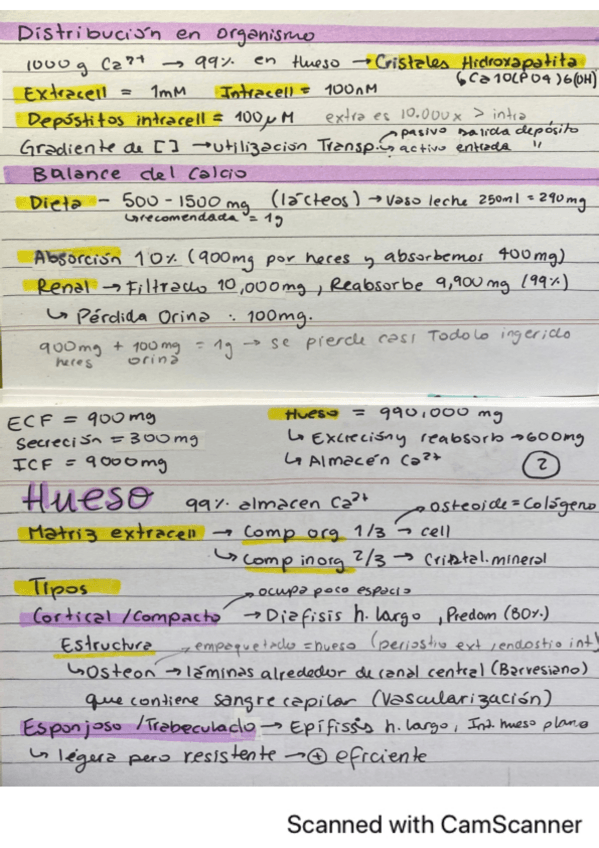 Distribución en organismo
1000g Ca²⁺ → 99% en Hueso → Cristales Hidroxapatita
↳ Ca10(PO4)6(OH)
Extracell = 1mM Intracell = 100nM
Depóstitos intracell = 100μM extra es 10.000x > intra
Gradiente de [ ] → utilización Transp. pasivo salida depósito
↳ activo entrada "
Balance del Calcio
Dieta - 500 - 1500 mg (lácteos) → Vaso leche 250ml = 290mg
↳ recomendada = 1g
Absorción 10% (900mg por heces y absorbemos 400mg)
Renal → Filtrado 10,000mg, Reabsorbe 9,900mg (99%)
↳ Pérdida Orina : 100mg.
900mg + 100mg = 1g → se pierde casi Todo lo ingerido
heces orina
ECF = 900mg Hueso = 990,000 mg
Secreción = 300mg ↳ Excreción y reabsorb → 600mg
ICF = 9000mg ↳ Almacén Ca²⁺ 2
Hueso 99% almacen Ca²⁺
osteoide = Colágeno
Matriz extracell → Comp org 1/3 → cell
↳ Comp inorg 2/3 → Cristal. mineral
Tipos
ocupa poco espacio
Cortical / Compacto → Diáfisis h. largo, Predom (80%)
Estructura empaquetado = hueso (periostio ext, endostio int)
↳ Osteon → láminas alrededor de canal central (Barvesiano)
que contiene sangre capilar (Vascularización)
Esponjoso / Trabeculado → Epífisis h. largo, Int. hueso plano
↳ légera pero resistente → ⊕ eficiente
Scanned with CamScanner